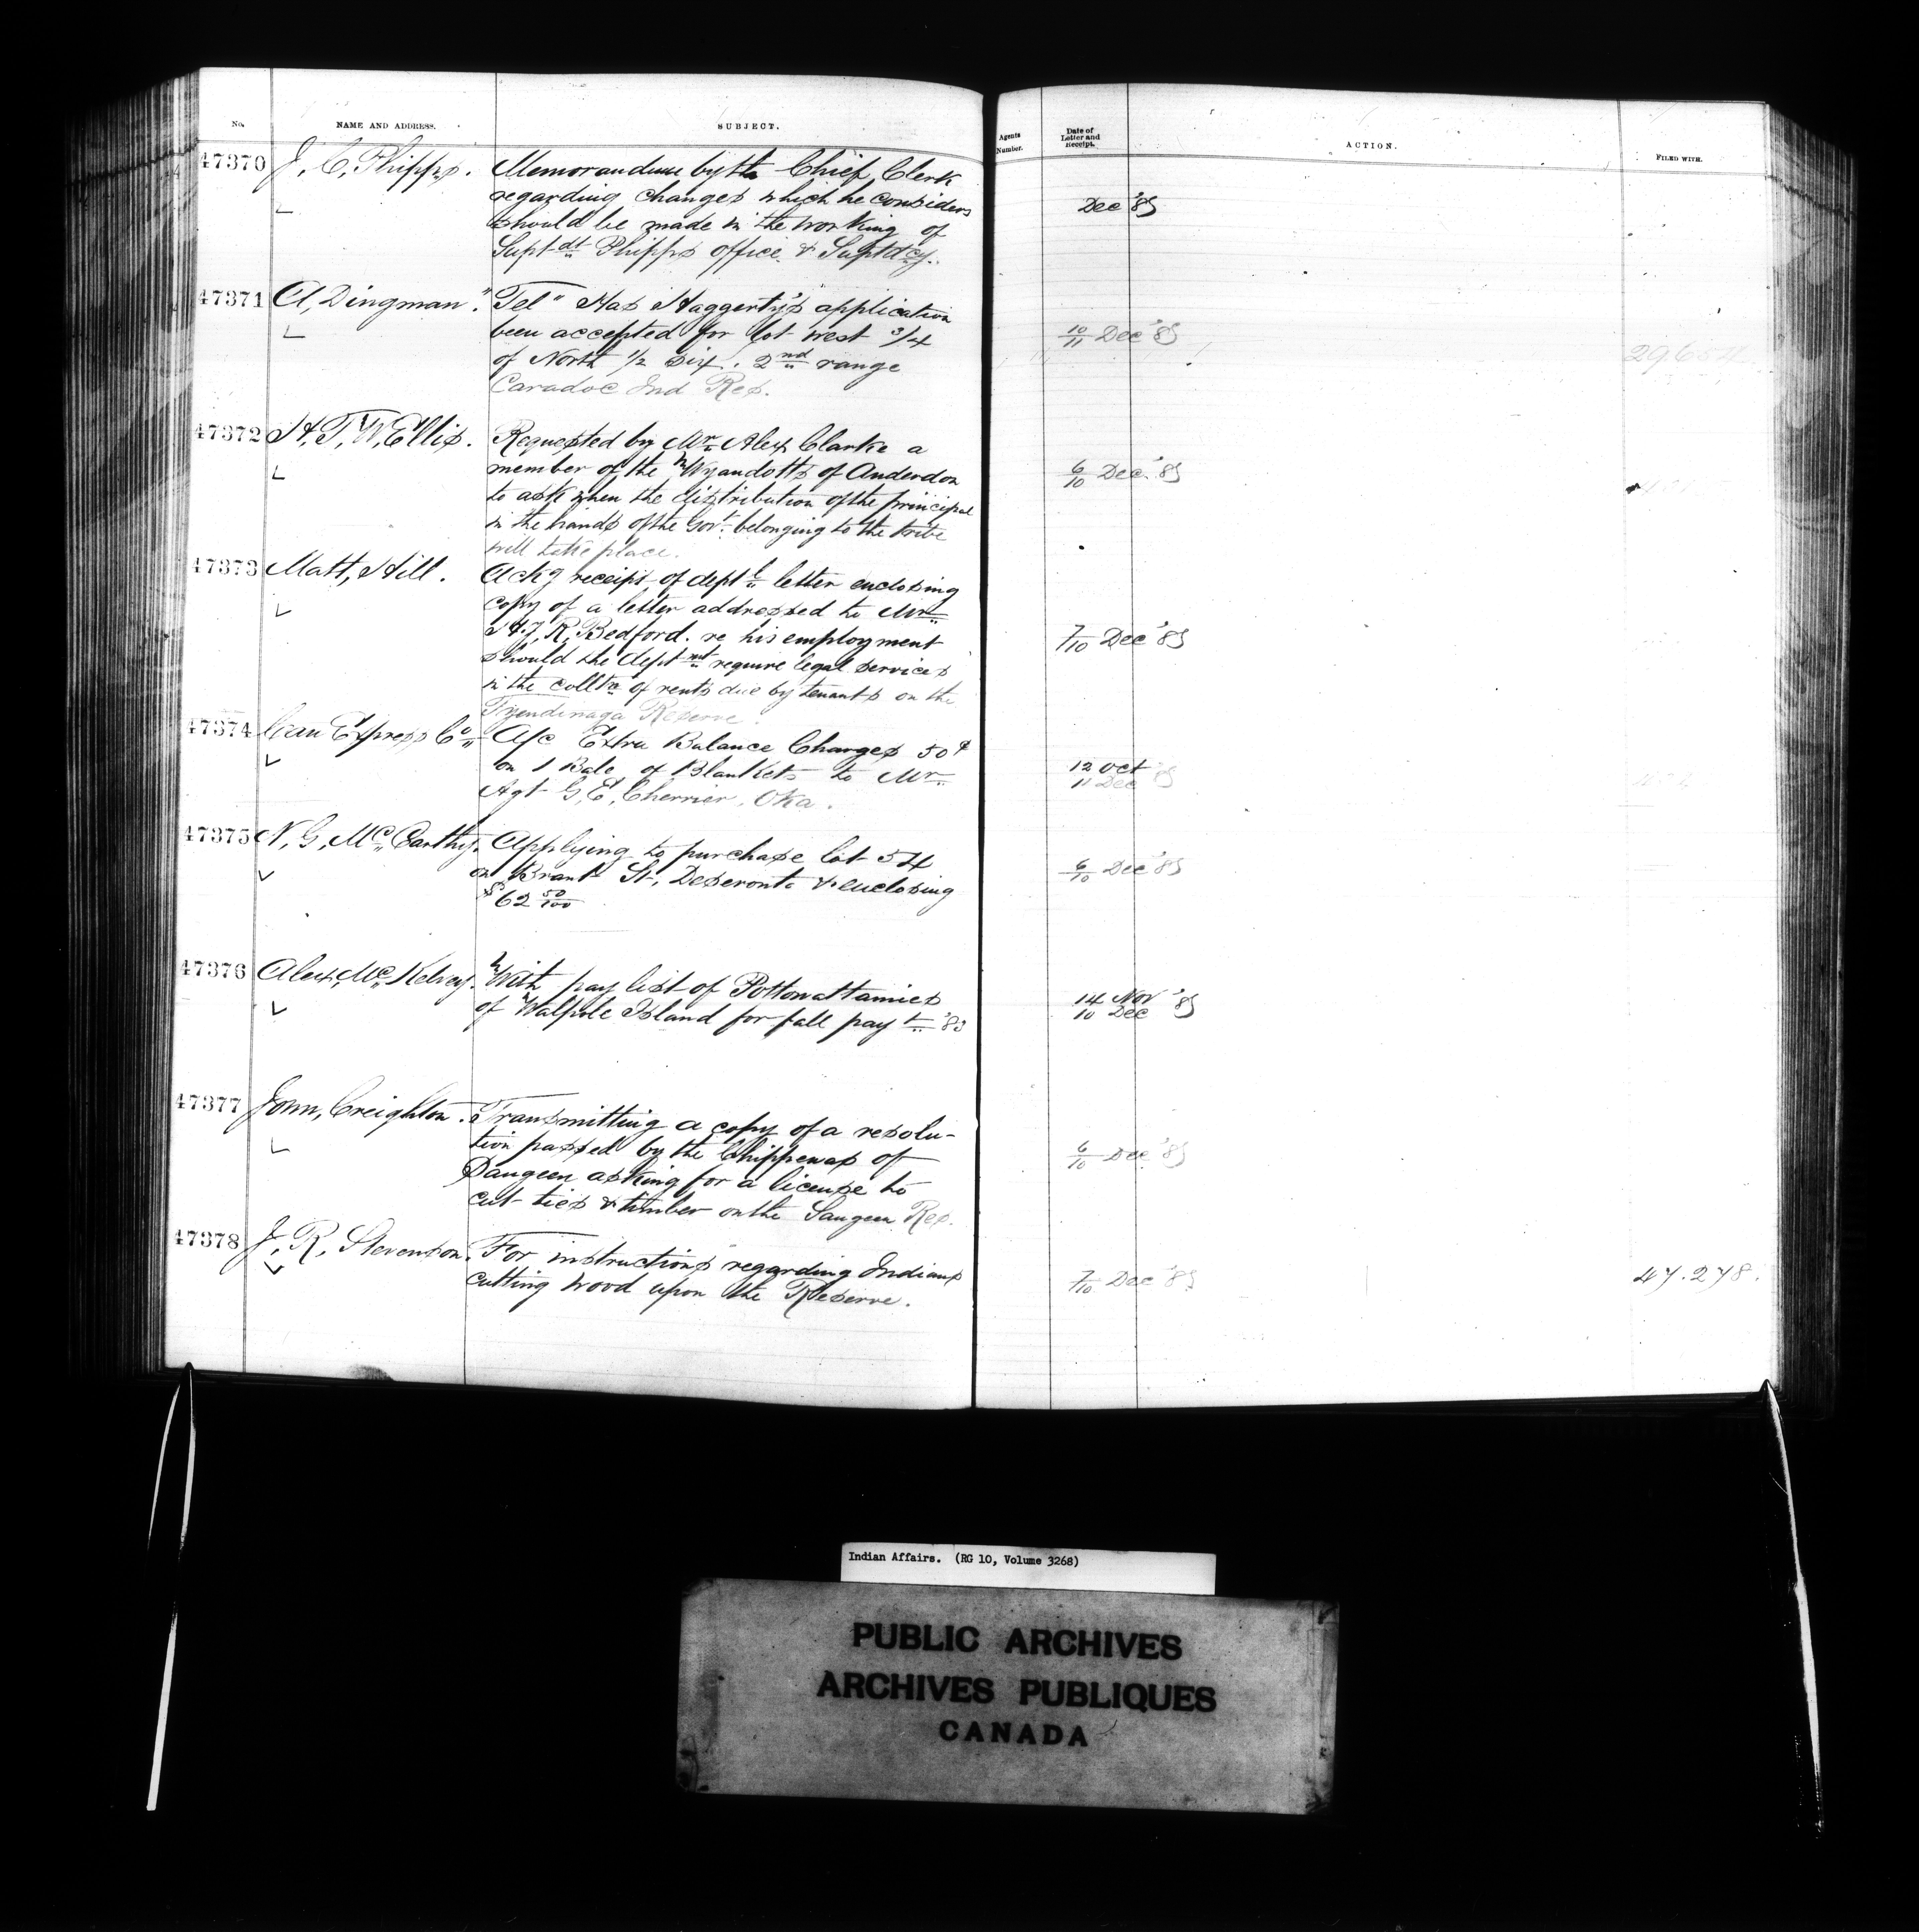 No.
NAME AND ADDRESS.
SUBJECT.
Agents Number.
Date of Letter and Receipt.
ACTION.
FILED WITH.
47370
J, C, Phipps.
Memorandum by the Chief Clerk
regarding changes which he considers
should be made in the working of
Supt dt Phipps office & Suptdcy.
Dec '85
47371
A, Dingman.
"Tel" Has Haggerty's application
been accepted for lot west 3/4
of North 1/2 Six. 2nd range
Caradoc Ind Res.
10/11 Dec '85
47372
H, T, W, Ellis.
Requested by Mr Alex Clarke a
member of the Wyandotts of Anderdon
to ask when the distribution of the principal
in the hands of the Govt. belonging to the tribe
will take place.
6/10 Dec '85
47373
Matt, Hill.
Ackg receipt of dept l letter enclosing
copy of a letter addressed to Mr
R, Bedford. re his employment
should the dept mt require legal services
in the colltn of rents due by tenants on the
Tyendinaga Reserve.
7/10 Dec '85
47374
Can Express Co
A/c Extra Balance Charges 50¢
on 1 Bale of Blankets to Mr
Agt G, E, Cherrier, Oka.
12 Oct
11 Dec '85
47375
N, G, Mc Carthy.
Applying to purchase lot 54
on Brant St, Deseronto & enclosing
$62 50/100
6/10 Dec '85
47376
Alex, Mc Kelvey.
With pay list of Pottowattamies
of Walpole Island for fall pay t '85
14 Nov
10 Dec '85
47377
John, Creighton.
Transmitting a copy of a resolu-
tion passed by the Chippewas of
Saugeen asking for a license to
cut ties & timber on the Saugeen Res.
6/10 Dec '85
47378
J, R, Stevenson.
For instructions regarding Indians
cutting wood upon the Reserve.
7/10 Dec '85
47.278.
Indian Affairs. (RG 10, Volume 3268)
PUBLIC ARCHIVES
ARCHIVES PUBLIQUES
CANADA